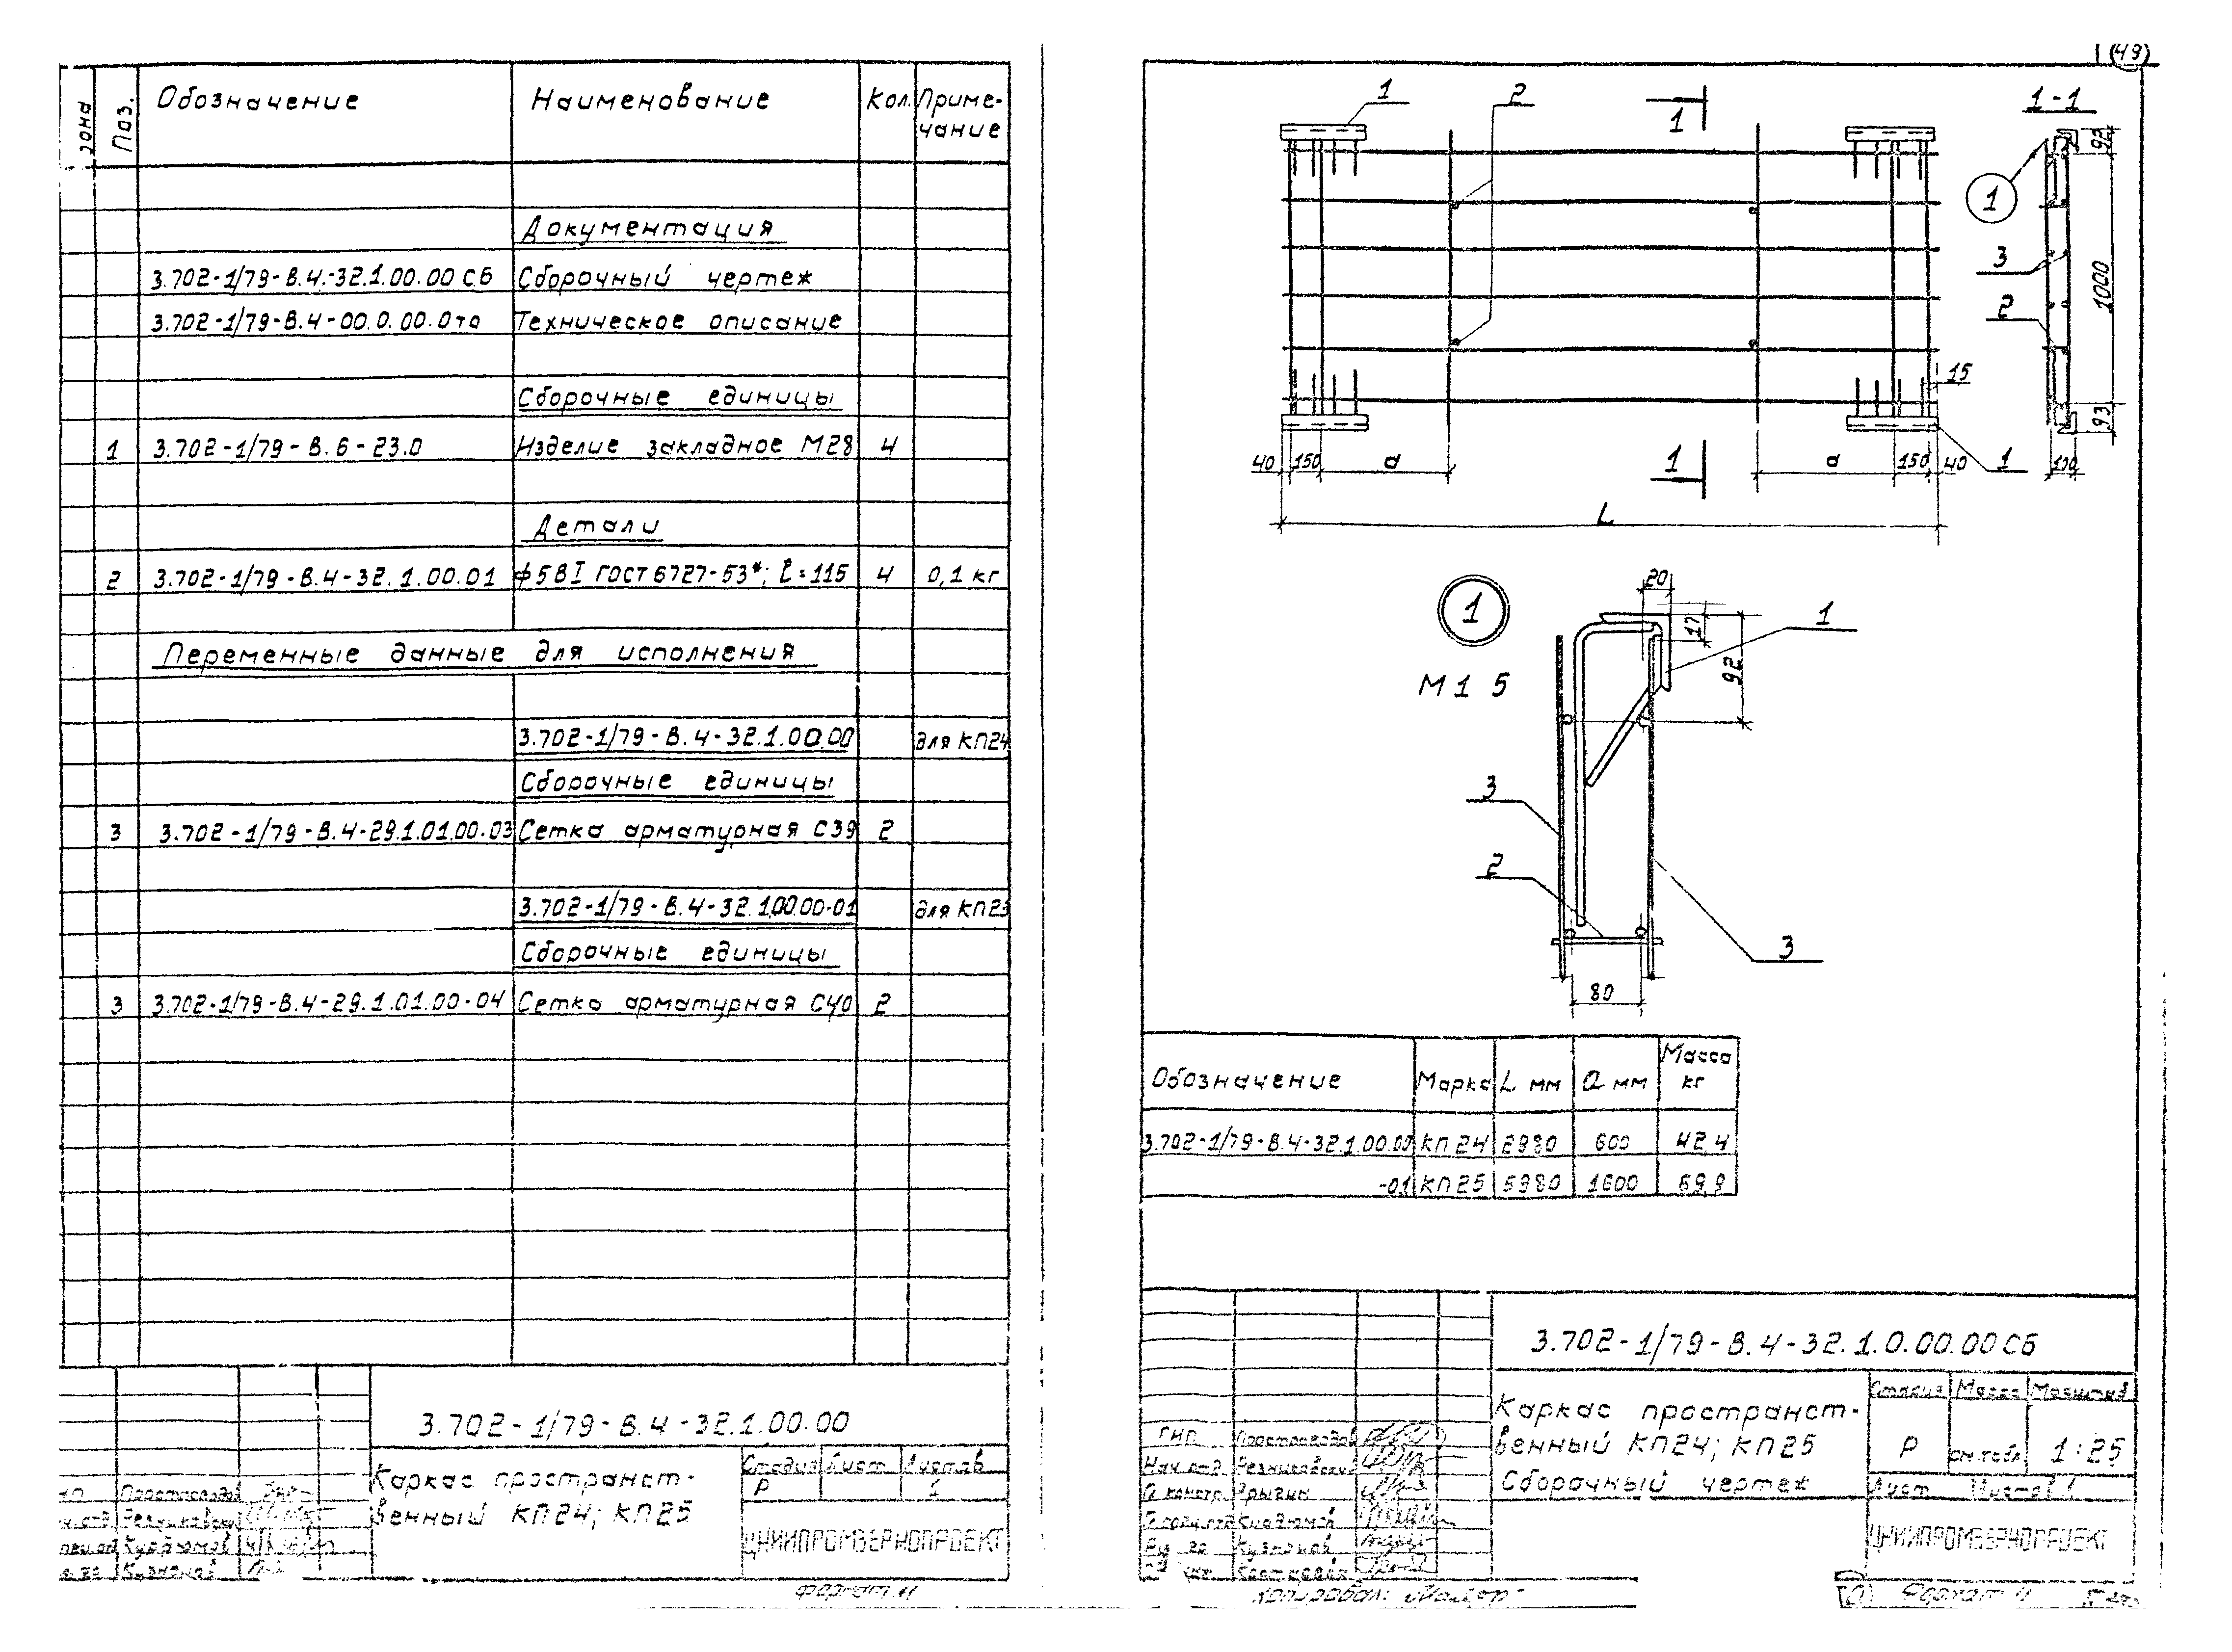 зона Поз. Обозначение Наименование Кол. Приме-
чание
Документация
3.702-1/79-В.4.-32.1.00.00 СБ Сборочный чертеж
3.702-1/79-В.4-00.0.00.0то Техническое описание
Сборочные единицы
1 3.702-1/79-В.6-23.0 Изделие закладное М28 4
Детали
2 3.702-1/79-В.4-32.1.00.01 ф5ВI ГОСТ 6727-53*; ℓ=115 4 0,1 кг
Переменные данные для исполнения
3.702-1/79-В.4-32.1.00.00 для КП24
Сборочные единицы
3 3.702-1/79-В.4-29.1.01.00-03 Сетка арматурная С39 2
3.702-1/79-В.4-32.1.00.00-01 для КП25
Сборочные единицы
3 3.702-1/79-В.4-29.1.01.00-04 Сетка арматурная С40 2
3.702-1/79-В.4-32.1.00.00
Каркас пространст-
венный КП24; КП25
Стадия Лист Листов
Р 1
ЦНИИПРОМЗЕРНОПРОЕКТ
Кузнецов
Формат 11
(49)
1 2 1 1-1
92
1
3
1000
2
15
93
40 150 а 1 а 150 40 1 100
L
1
М1 5
20
17
1
92
3
2
3
80
Обозначение Марка L мм а мм Масса
кг
3.702-1/79-В.4-32.1.00.00 КП24 2980 600 42.4
-01 КП25 5980 1600 69,9
3.702-1/79-В.4-32.1.0.00.00 СБ
Каркас пространст-
венный КП24; КП25
Сборочный чертеж
Стадия Масса Масштаб
Р см.табл. 1:25
Лист Листов 1
ЦНИИПРОМЗЕРНОПРОЕКТ
ГИП
Нач.отд. Резниковский
Гл.констр. Ярыгин
Кузнецов
Копировал:
Формат 11